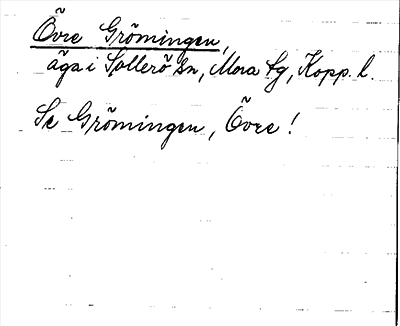 Övre Grömingen,
äga i Sollerö sn, Mora tg, Kopp. l.
Se Grömingen, Övre!